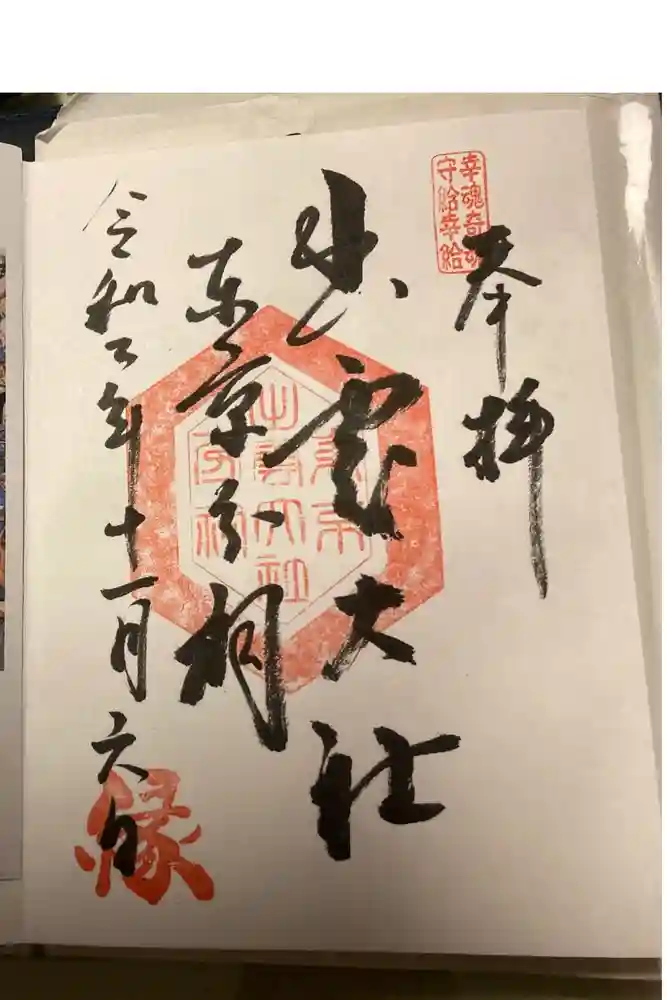 幸魂奇魂
守給幸給
奉拝
出雲大社
東京分祠
東京
出雲大社
分祠
令和元年十一月六日
縁